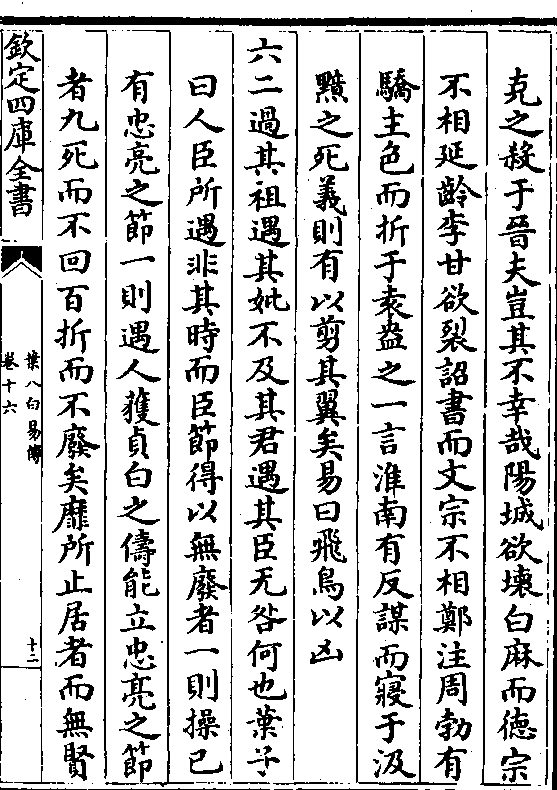 克之殺于晉夫豈其不幸哉陽城欲壞白麻而徳宗
不相延齡李甘欲裂詔書而文宗不相鄭注周勃有
驕主色而折于袁盎之一言淮南有反謀而寢于汲
黯之死義則有以剪其翼矣易曰飛鳥以凶
六二過其祖遇其妣不及其君遇其臣无咎何也葉子
曰人臣所遇非其時而臣節得以無廢者一則操已
有忠亮之節一則遇人獲貞白之儔能立忠亮之節
者九死而不回百折而不廢矣靡所止居者而無賢
欽定四庫全書
葉八白易傳
卷十六
十二